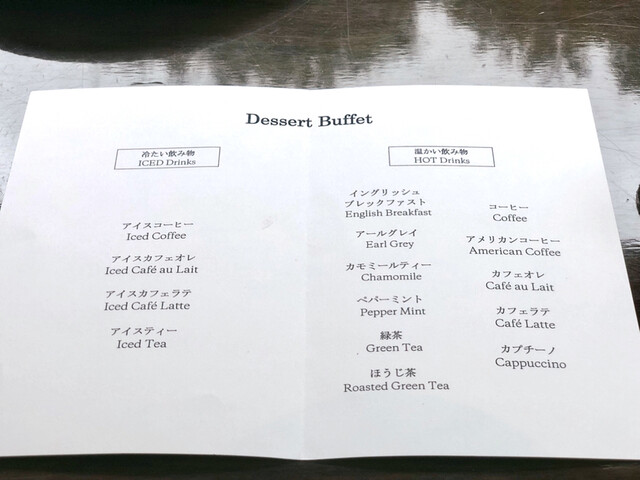 Dessert Buffet
冷たい飲み物
ICED Drinks
アイスコーヒー
Iced Coffee
アイスカフェオレ
Iced Café au Lait
アイスカフェラテ
Iced Café Latte
アイスティー
Iced Tea
温かい飲み物
HOT Drinks
イングリッシュ
ブレックファスト
English Breakfast
アールグレイ
Earl Grey
カモミールティー
Chamomile
ペパーミント
Pepper Mint
緑茶
Green Tea
ほうじ茶
Roasted Green Tea
コーヒー
Coffee
アメリカンコーヒー
American Coffee
カフェオレ
Café au Lait
カフェラテ
Café Latte
カプチーノ
Cappuccino